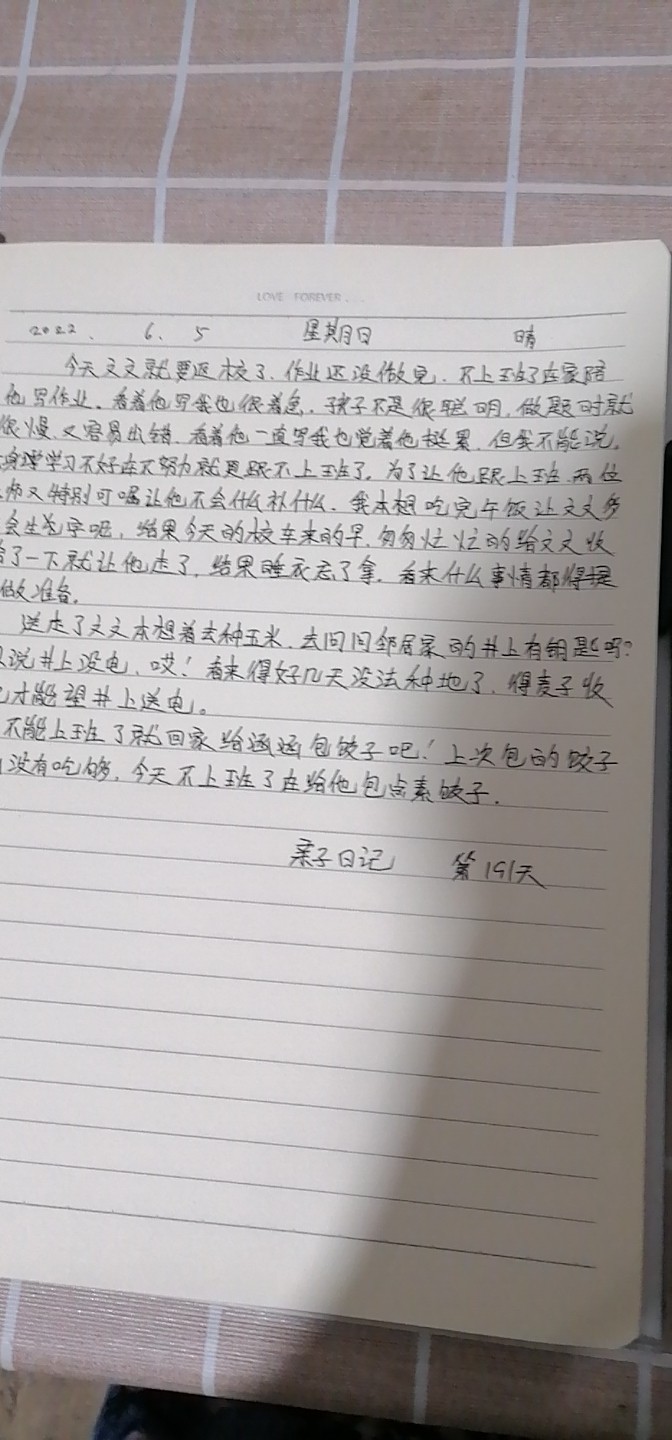 LOVE FOREVER...
2022. 6. 5 星期日 晴
今天文文就要返校了.作业还没做完.不上班了在家陪
他写作业.看着他写我也很着急.孩子不是很聪明,做题时就
很慢.又容易出错.看着他一直写我也觉着他挺累.但我不能说.
学习不好在不努力就更跟不上班了.为了让他跟上班.两位
师又特别叮嘱让他不会什么补什么.我本想吃完午饭让文文多
会生字呢,结果今天的校车来的早.匆匆忙忙的给文文收
了一下就让他走了.结果睡衣忘了拿.看来什么事情都得提
做准备.
送走了文文本想着去种玉米.去问问邻居家的井上有钥匙吗?
说井上没电.哎!看来得好几天没法种地了.得麦子收
才能望井上送电。
不能上班了就回家给涵涵包饺子吧!上次包的饺子
没有吃够.今天不上班了在给他包点素饺子.
亲子日记 第191天